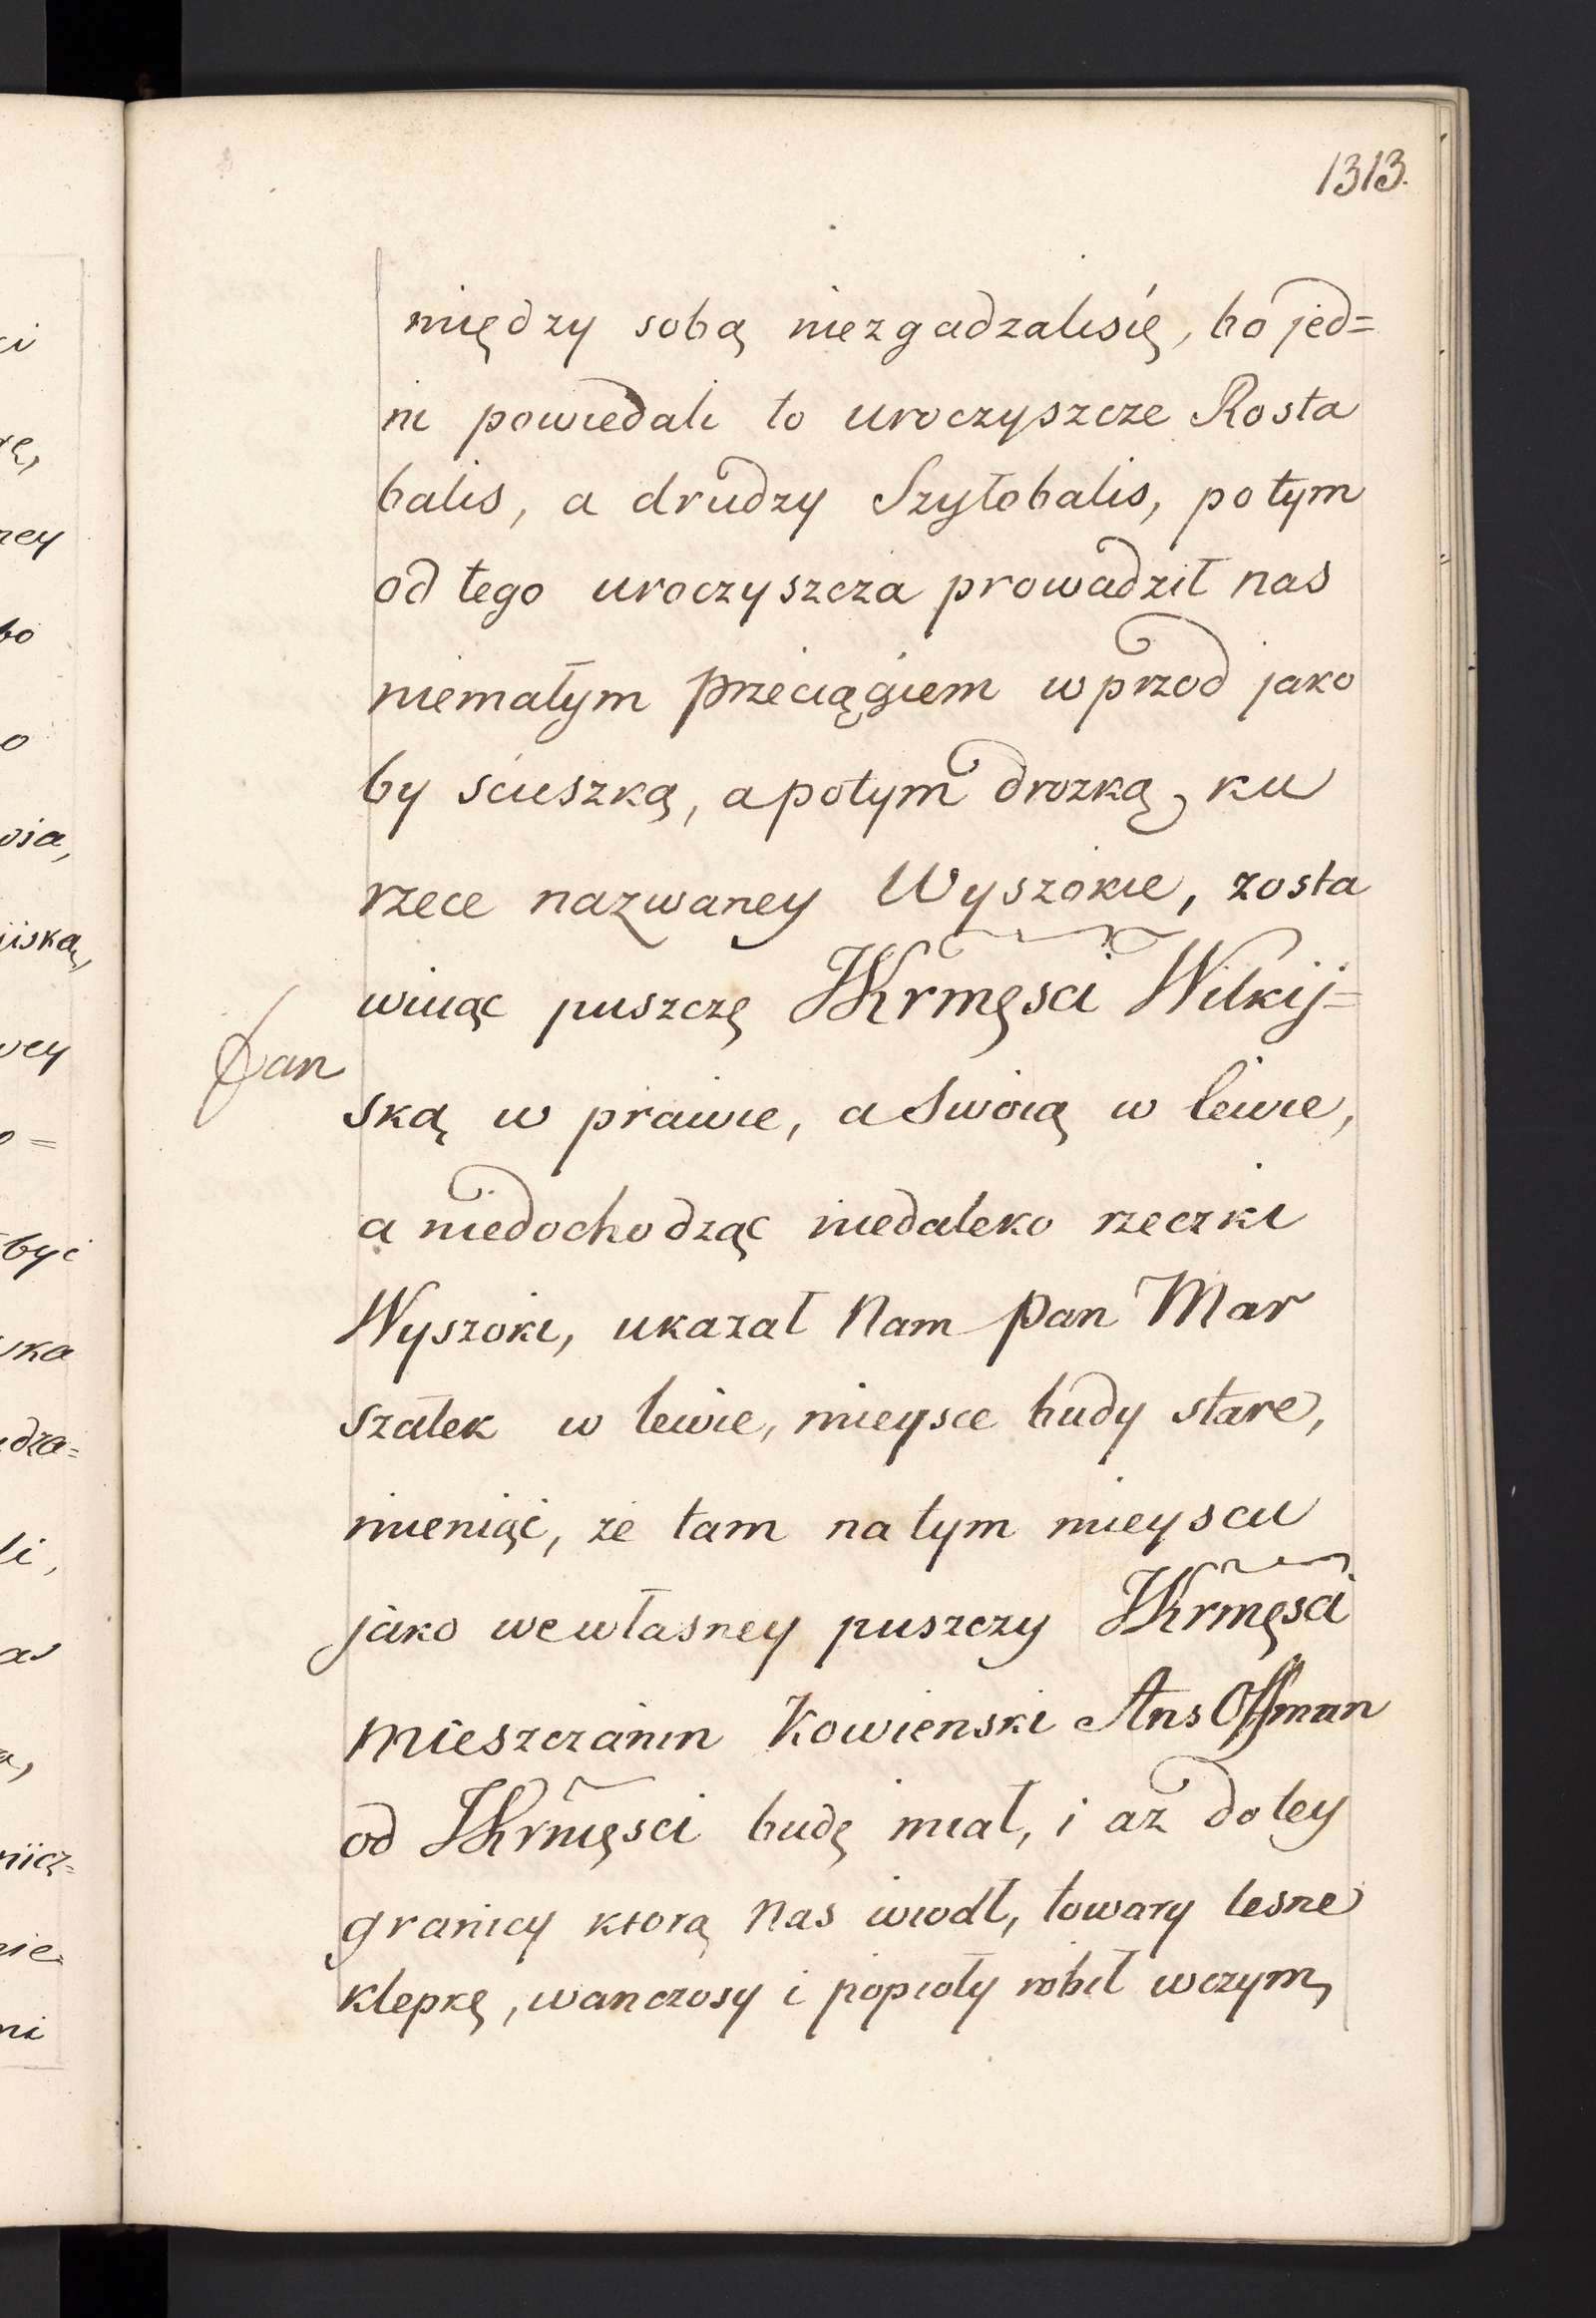 1313.
między sobą niezgadzalisię, bo jed=
ni powiedali to uroczyszcze Rosta
balis, a drudzy Szyłobalis, potym
od tego uroczyszcza prowadził nas
niemałym przeciągiem wprzod jako
by scieszką, a potym drozką, ku
rzece nazwaney Wyszokie, zosta
wiuąc puszczę JKrmęsci Wilkij=
ską w prawie, a Swoią w lewie,
a niedochodząc niedaleko rzeczki
Wyszoki, ukazał Nam Pan Mar
szałek w lewie, mieysce budy stare,
mieniąć, że tam na tym mieyscu
jako wewłasney puszczy JKrmęsci
mieszczanin Kowienski Ans Offman
od JKrmęsci budę miał, i aż do tey
granicy ktorą Nas wiodł, towary lesne
klepkę, wanczosy i popioły robił wczym,